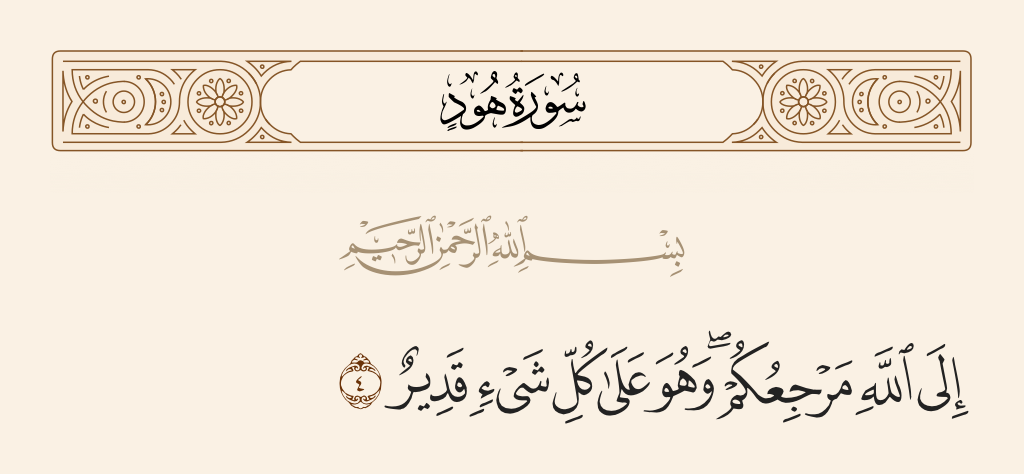 سُورَةُ هُودٍ
بِسْمِ ٱللَّهِ ٱلرَّحْمَٰنِ ٱلرَّحِيمِ
إِلَى ٱللَّهِ مَرْجِعُكُمْ ۖ وَهُوَ عَلَىٰ كُلِّ شَىْءٍ قَدِيرٌ ٤